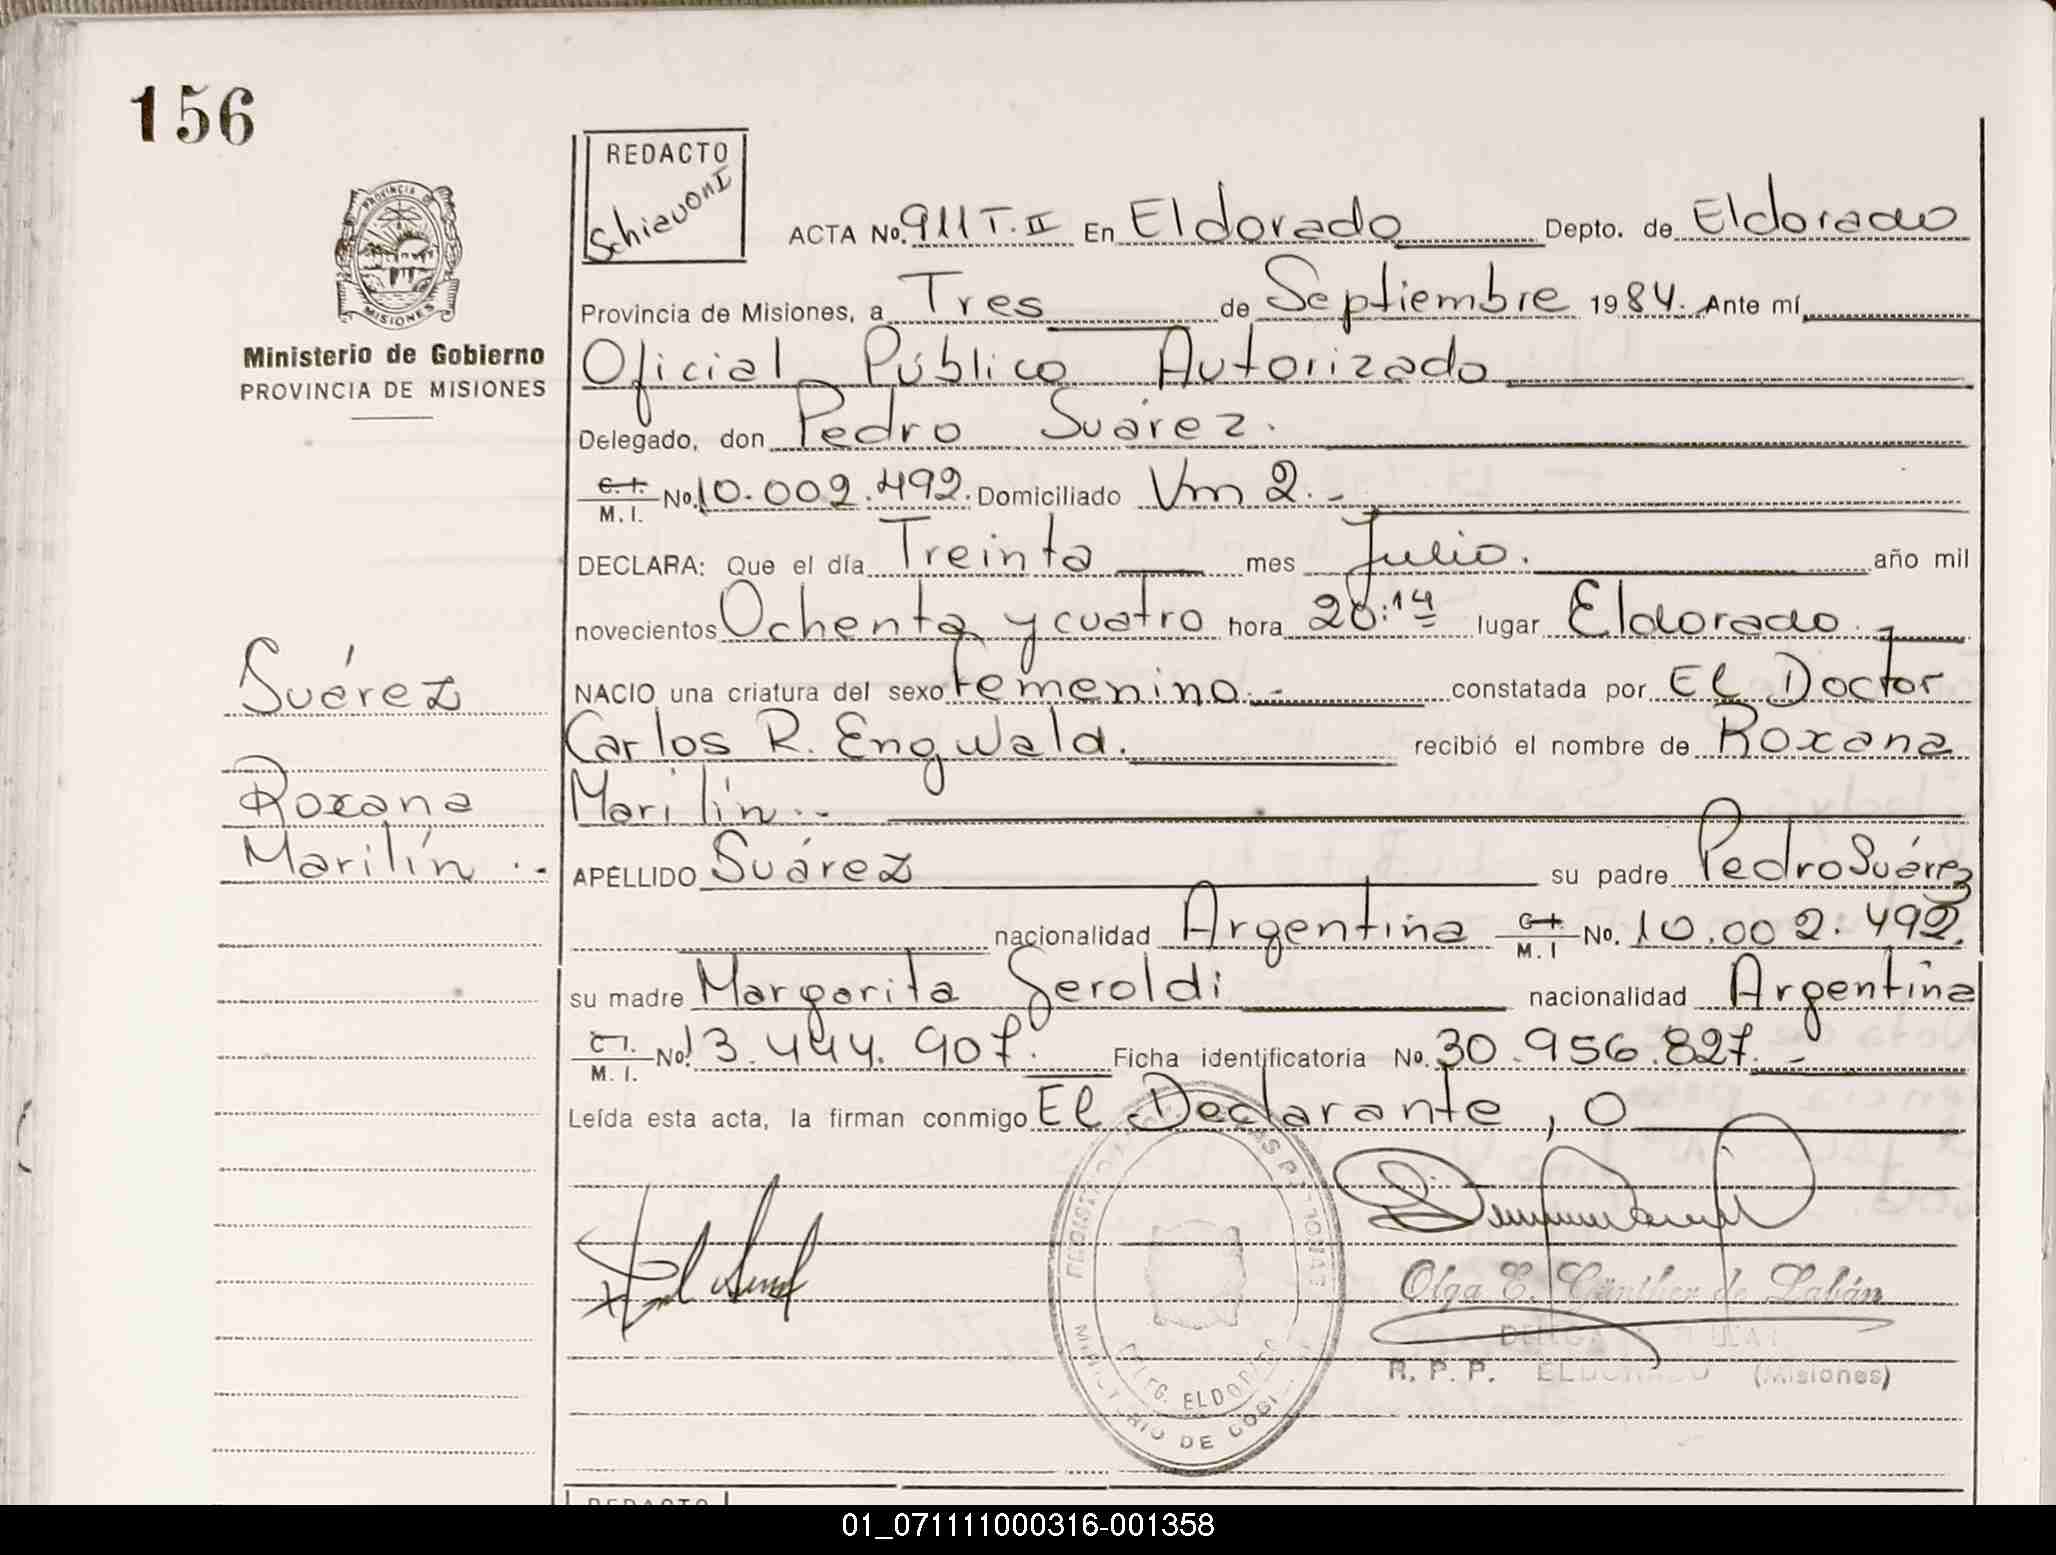 156
REDACTO
Schiavoni
PROVINCIA DE
MISIONES
Ministerio de Gobierno
PROVINCIA DE MISIONES
ACTA No. 911 T. II En Eldorado Depto. de Eldorado
Provincia de Misiones, a Tres de Septiembre 1984. Ante mí,
Oficial Público Autorizado
Delegado, don Pedro Suárez.
C. I. M. I. No. 10.002.492. Domiciliado Vm 2.-
DECLARA: Que el día Treinta mes Julio. año mil
novecientos Ochenta y cuatro hora 20:14 lugar Eldorado.
NACIO una criatura del sexo femenino.- constatada por El Doctor
Carlos R. Engwald. recibió el nombre de Roxana
Marilín.-
APELLIDO Suárez su padre Pedro Suárez
nacionalidad Argentina C. I. M. I No. 10.002.492.
su madre Margarita Geroldi nacionalidad Argentina
C. I. M. I. No. 13.444.907. Ficha identificatoria No. 30.956.827.-
Leída esta acta, la firman conmigo El Declarante, o
Suárez
Roxana
Marilín .-
DELEG. ELDORADO
Olga E. Günther de Labán
R. P. P. ELDORADO (Misiones)
REDACTO
01_071111000316-001358